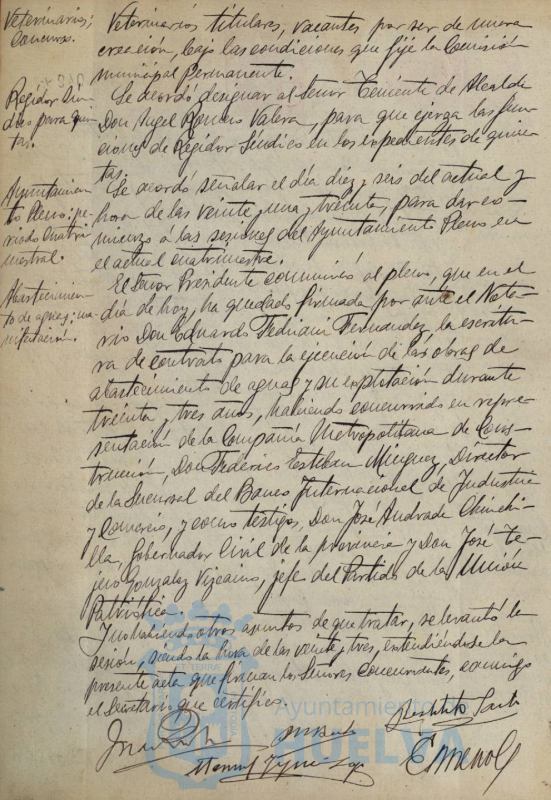 Veterinarios;
Concurso.
Veterinarios titulares, vacantes por ser de nueva
creación, bajo las condiciones que fije la Comisión
municipal Permanente.
Regidor Sín-
dico para quin-
tas.
Se acordó designar al Señor Teniente de Alcalde
Don Angel Romero Valera, para que ejerza las fun-
ciones de Regidor Síndico en los expedientes de quin-
tas.
Ayuntamien-
to Pleno; pe-
riodo cuatri-
mestral.
Se acordó señalar el día diez y seis del actual y
hora de las veinte, una y treinta, para dar co-
mienzo á las sesiones del Ayuntamiento Pleno en
el actual cuatrimestre.
Abastecimien-
to de aguas;
El Señor Presidente comunicó al pleno, que en el
día de hoy, ha quedado firmada por ante el Nota-
rio Don Eduardo Fedriani Fernandez, la escritu-
ra de contrato para la ejecución de las obras de
abastecimiento de aguas y su explotación durante
treinta y tres años, habiendo concurrido en repre-
sentación de la Compañía Metropolitana de Cons-
trucción, Don Federico Esteban Minguez, Director
de la Sucursal del Banco Internacional de Industria
y Comercio, y como testigos, Don José Andrade Chinchi-
lla, Gobernador Civil de la provincia y Don José Te-
jero Gonzalez Vizcaino, jefe del Partido de la Unión
Patriótica.
Y no habiendo otros asuntos de que tratar, se levantó la
sesión, siendo la hora de las veinte y tres, extendiéndose la
presente acta que firman los Señores Concurrentes, conmigo
el Secretario que certifico.
Ayuntamiento de
HUELVA